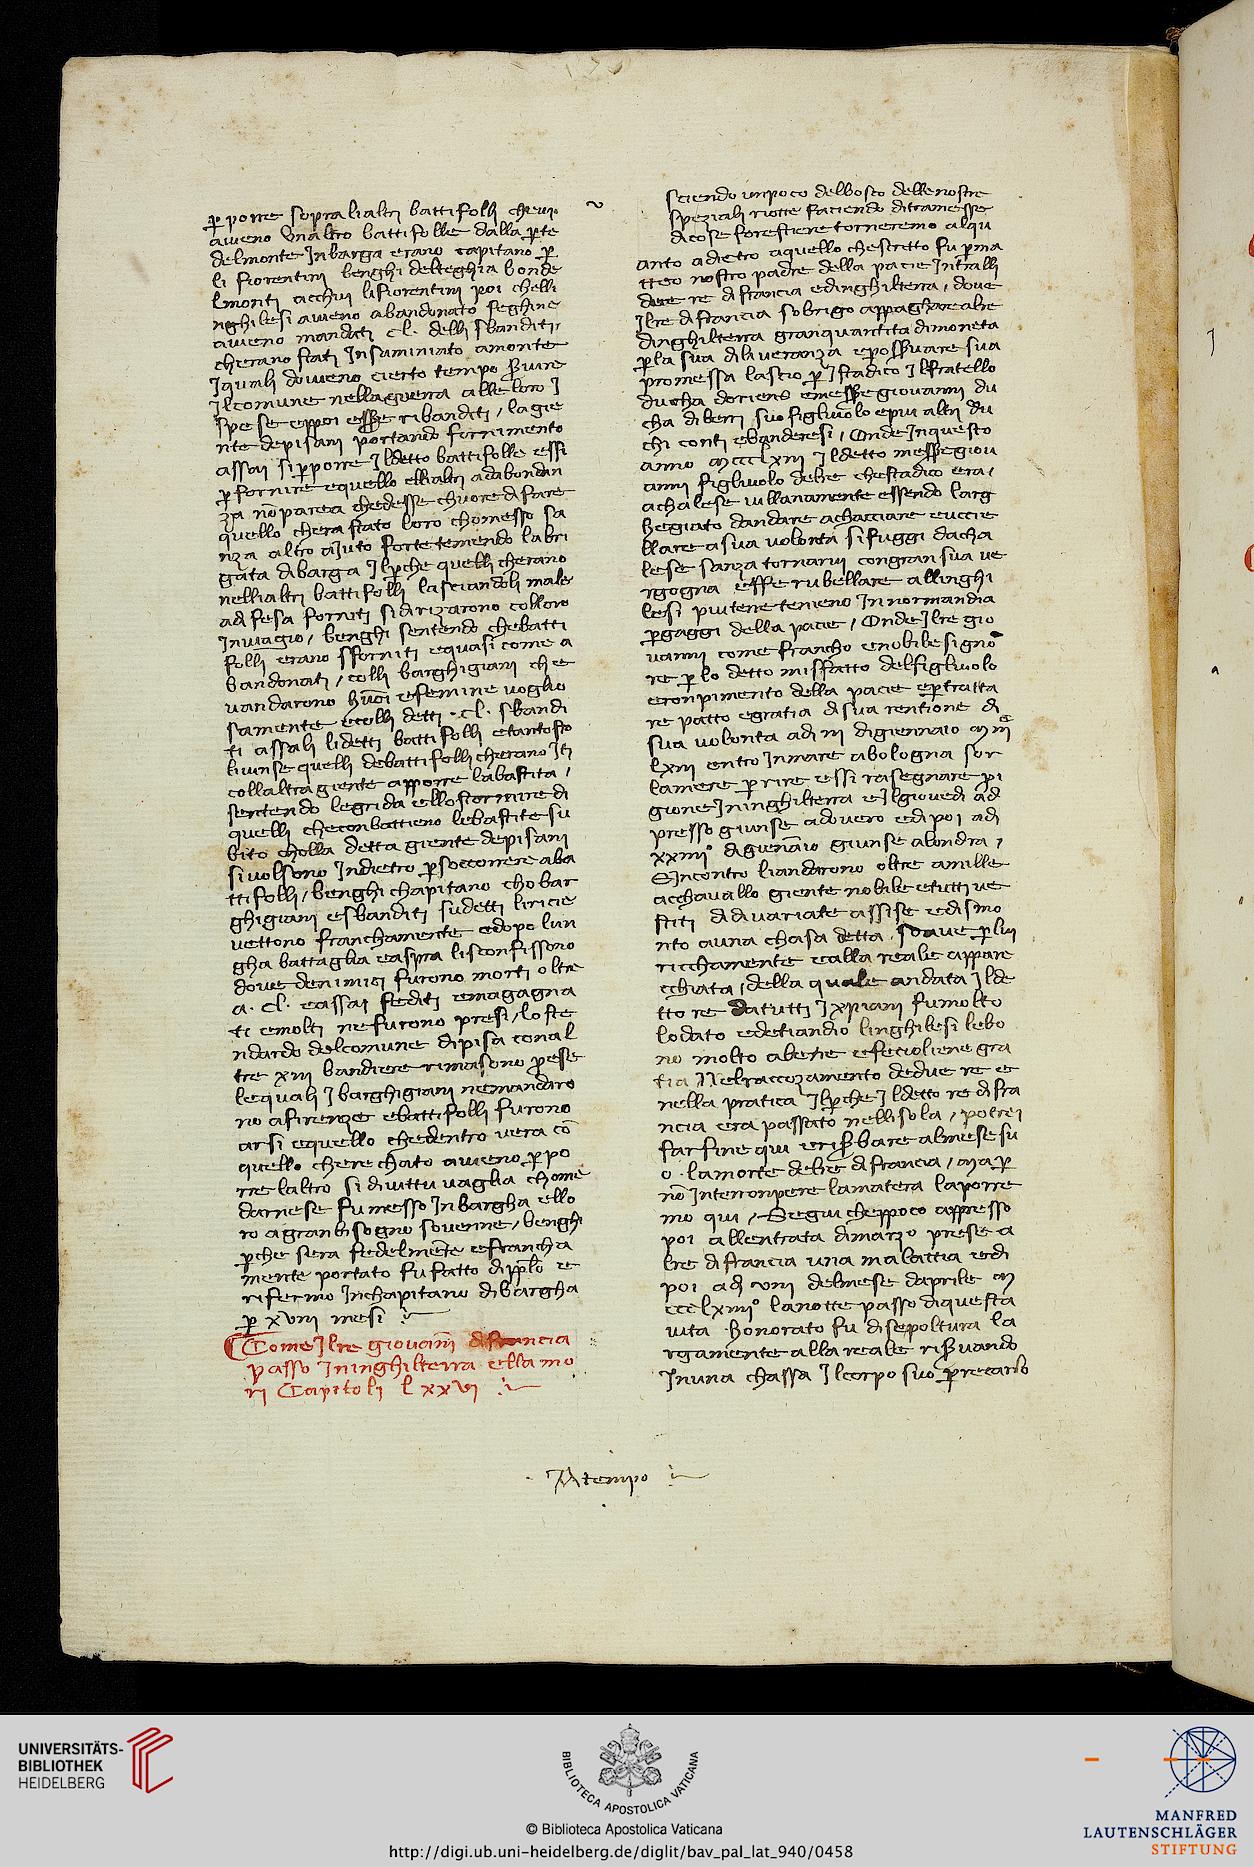 p porre sopra lialtri battifolli chevi
aveno Unaltro battifolle dalla pte
delmonte Jnbarga erano capitano p
li fiorentini benghi delteghia bonde
lmonti acchui lifiorentini poi chelli
nghilesi aveno abandonato feghine
aveno mandati cl. delli sbanditi
cherano stati Jnsaminiato amonte
Jquali doveno cierto tempo Svire
Jlcomune nellaguerra alle loro J
spese eppoi esse ribanditi / la gie
nte depisani portando fornimento
assai si pporre Jldetto battifolle essi
p fornire equello ellialtri adabondan
za no parea chedesse chuore difare
quello chera stato loro chomesso sa
nza altro aiuto forte temendo labri
gata dibarga Jlpche quelli cherano
nellialtri battifolli lasciandoli male
adifesa forniti sidirizarono colloro
Jnviagio / benghi sentendo chebatti
folli erano sforniti equasi come a
bandonati / colli barghigiani che
vandarono huoi efemine voglio
samente ecolli detti .cl. sbandi
ti assali lidetti battifolli etantosto
livinse quelli debattifolli cherano Jti
collaltra giente apporre labastita /
sentendo legrida ello stormire di
quelli checonbattieno lebastite su
bito cholla detta giente depisani
sivolsono Jndietro psoccorrere aba
ttifolli / benghi chapitano cho bar
ghigiani esbanditi sudetti liricie
vettono franchamente edopo lun
gha battaglia easpra lisconfissono
dove denimici furono morti oltre
a. cl. eassai fediti emagagna
ti emolti nefurono presi / loste
ndardo delcomune dipisa conal
tre xiii bandiere rimasono prese
lequali Jbarghigiani nemandaro
no afirenze ebattifolli furono
arsi equello chedentro vera co
quello cherechato aveno ppo
rre laltro si divittuvaglia chome
darnese fumesso Jnbargha ello
ro agranbisogno sovenne / benghi
pche sera fedelmente efrancha
mente portato fu fatto dipplo e
rifermo Jnchapitano dibargha
p xviii mesi
Come Jlre giovanni difrancia
passo Jninghilterra ella mo
ri Capitoli lxxvi
sciendo unpoco delbosco dellenostre
speziali riotte faciendo ditramesse
dicose forestiere torneremo alqu
anto adietro aquello chescretto fu pma
tteo nostro padre della pacie Jntralli
due re difrancia edinghilterra / dove
Jlre difrancia sobrigo appaghare alre
dinghilterra granquantita dimoneta
pla sua diliveranza eposservare sua
promessa lascio p Jstadico Jlfratello
ducha doriens emesse giovanni du
cha diberri suo figliuolo epiu altri du
chi conti ebanderesi / Onde Jnquesto
anno mccclxiii Jldetto messe giov
anni figliuolo delre chestadico era /
achalese villanamente essendo larg
hegiato dandare achacciare euccie
llare asua volonta sifuggi dacha
lese sanza tornarvi congran sua ve
rgogna effe rubellare allinghi
lesi piutene tenieno Jnnormandia
pgaggi della pacie / Onde Jlre gio
vanni come francho enobile signo
re p lo detto misfatto delfigliuolo
eronpimento della pacie eptratta
re patto egratia disua rentione di
sua volonta adi iii digiennaio m
lxiii entro Jnmare abologna sor
lamere prire essi rasegnare pi
gione Jninghilterra eJlgiovedi ad
presso giunse adovero edipoi adi
xxiiii digiennaio giunse alondra /
Oncontro liandarono oltre amille
acchavallo giente nobile etutti ve
stiti didivariate assise edismo
nto auna chasa detta soave plui
ricchamente ealla reale appare
cchiata / della quale andata Jlde
tto re datutti Jxpiani fumolto
lodato edetiandio linghilesi lebo
no molto abene efecioliene gra
tia Nelraccozamento dedue re e
nella pratica Jlpche Jldetto re difra
ncia era passato nellisola / potrei
far fine qui eriserbare almesesu
o lamorte delre difrancia / Ma p
no interronpere lamatera laporre
mo qui / Segui cheppoco appresso
poi allentrata dimarzo prese a
lre difrancia una malattia edi
poi adi viii delmese daprile m
ccclxiiii lanotte passo diquesta
vita Honorato fu disepoltura la
rgamente alla reale riservando
Jnuna chassa Jlcorpo suo precarlo
Atempo
UNIVERSITÄTS-
BIBLIOTHEK
HEIDELBERG
BIBLIOTECA APOSTOLICA VATICANA
© Biblioteca Apostolica Vaticana
http://digi.ub.uni-heidelberg.de/diglit/bav_pal_lat_940/0458
MANFRED
LAUTENSCHLÄGER
STIFTUNG